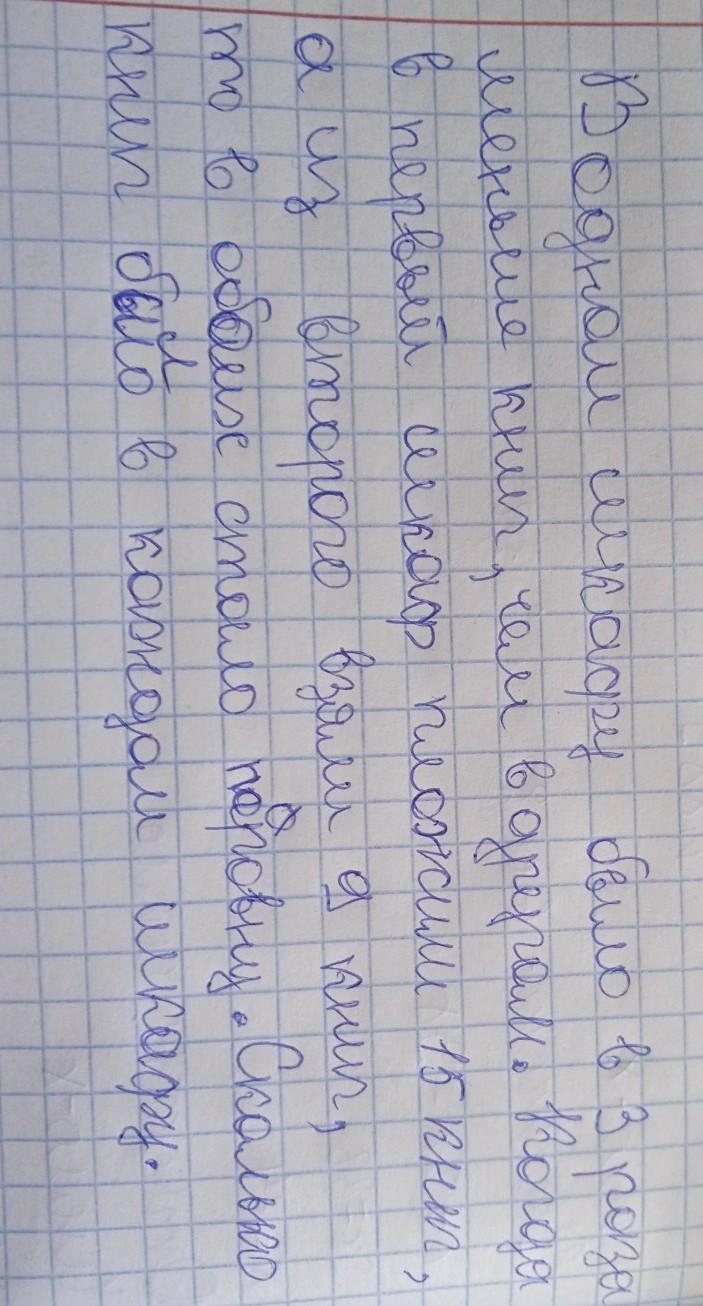 В одном шкафу было в 3 раза
меньше книг, чем в другом. Когда
в первый шкаф положили 15 книг,
а из второго взяли 9 книг,
то в обоих стало поровну. Сколько
книг было в каждом шкафу.